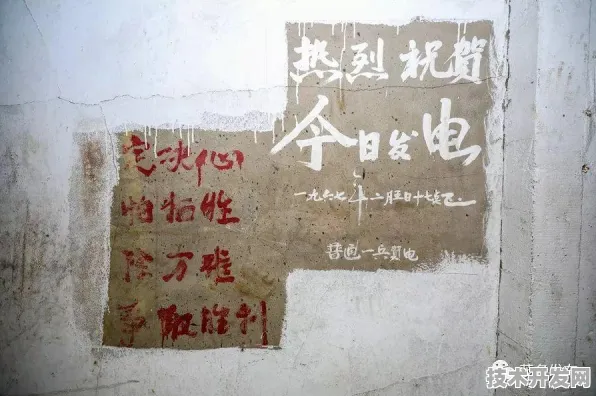 热烈祝賀
今日发电
一九六七年二月五日十七点正.
普通一兵賀电
定决心
怕牺牲
除万难
争取胜利
技术开发网